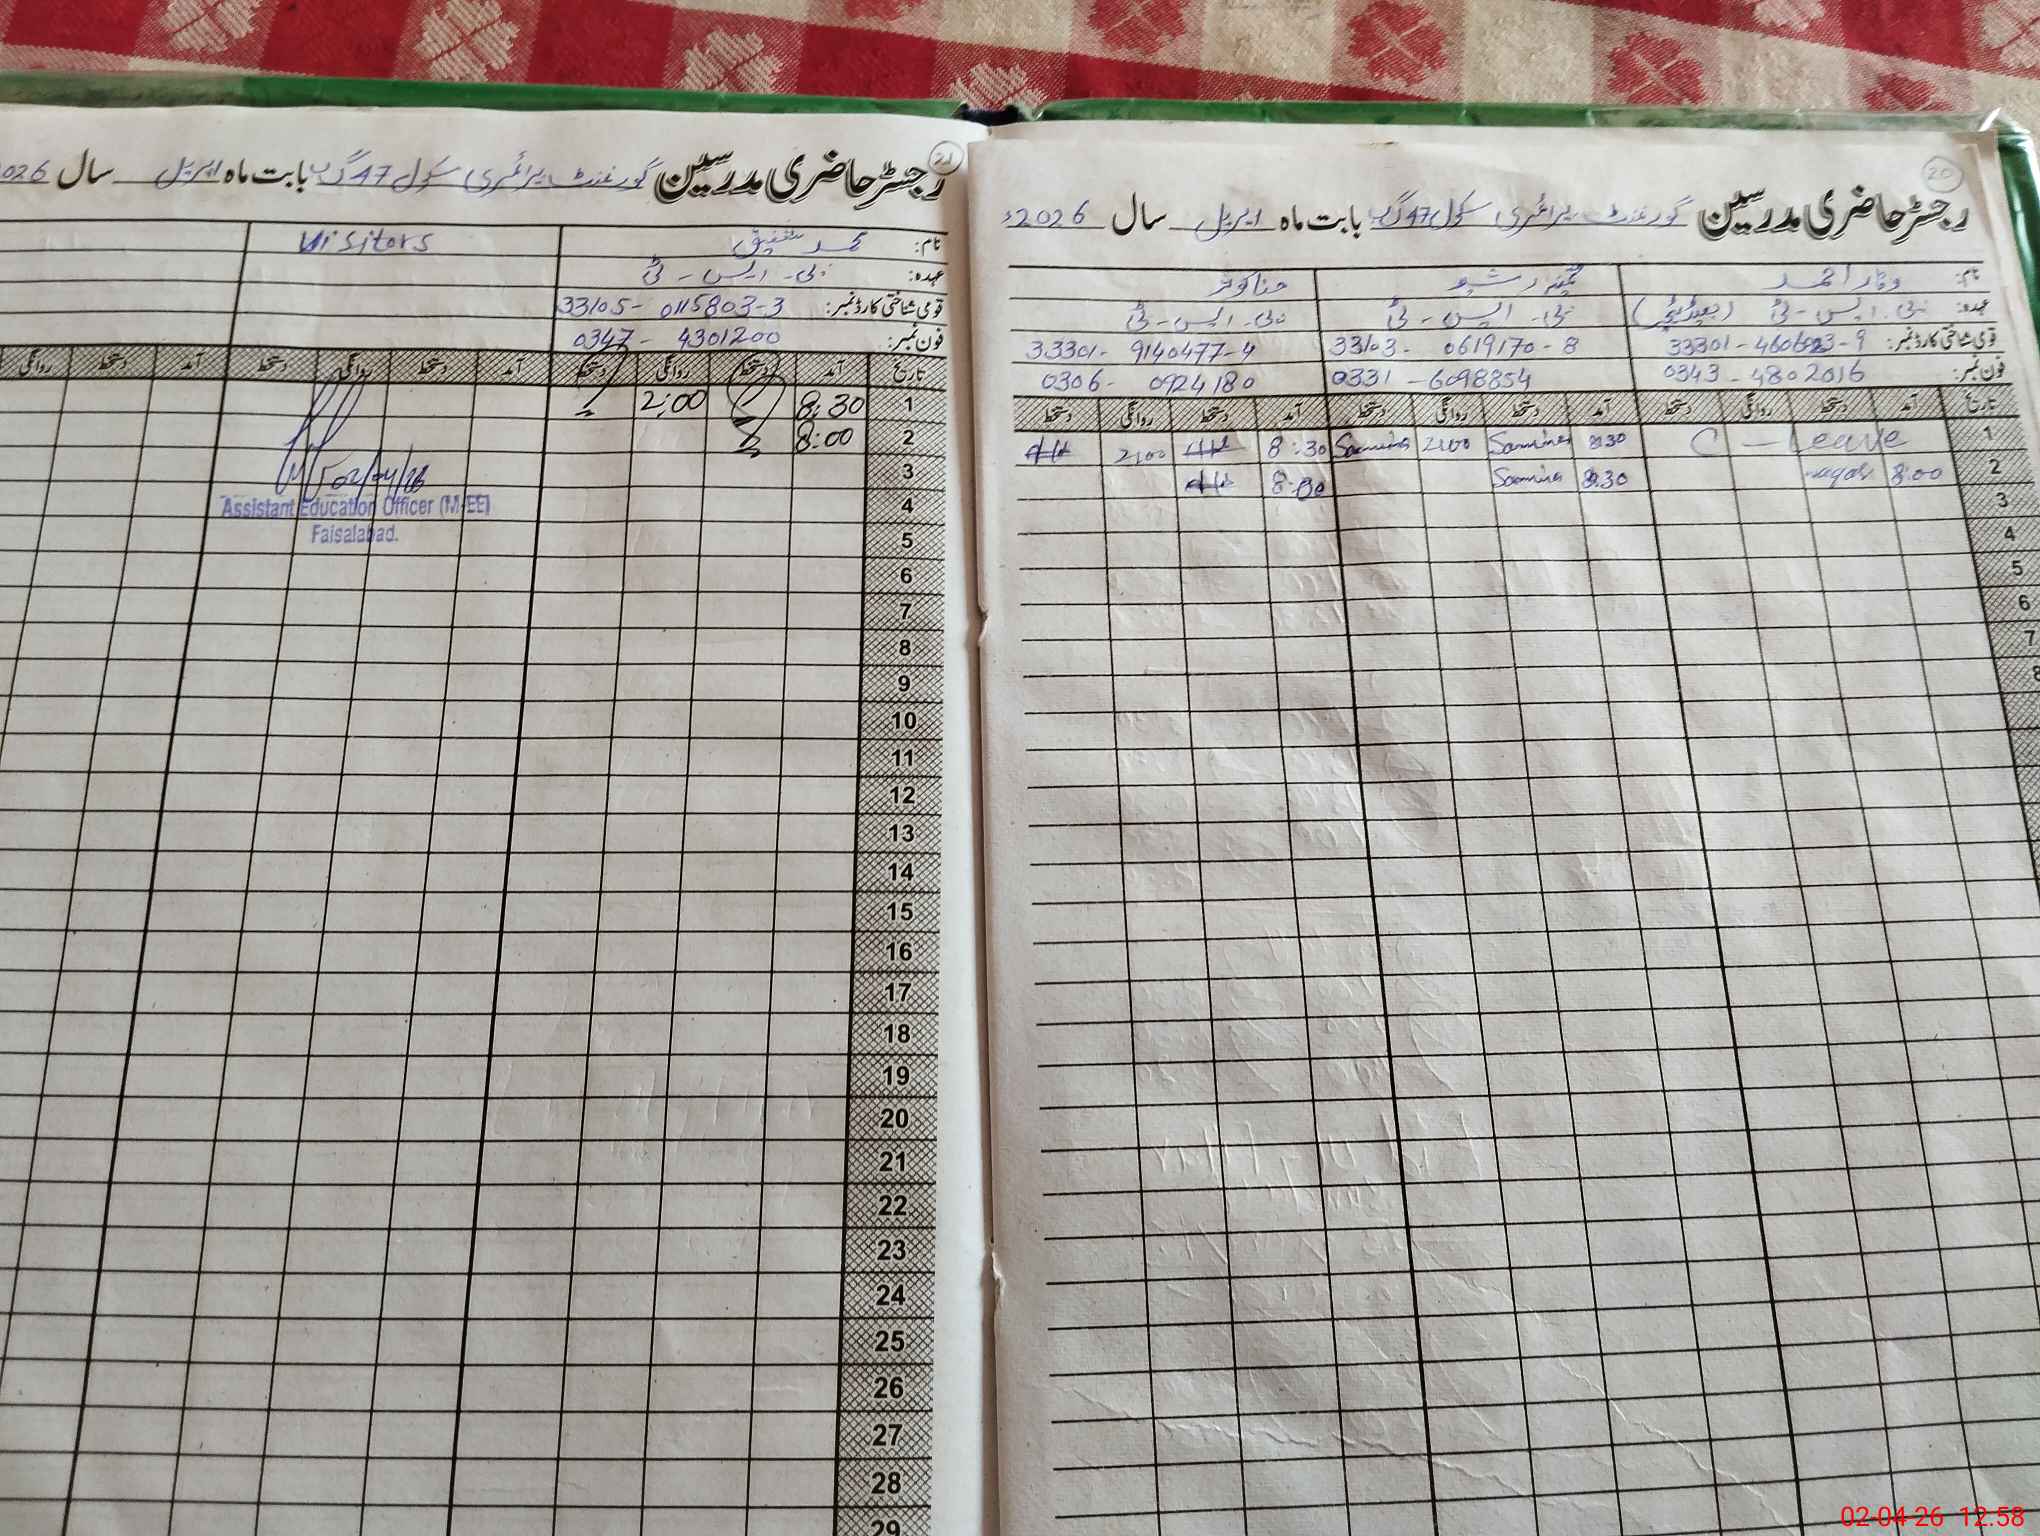 رجسٹر حاضری مدرسین گورنمنٹ پرائمری سکول 47 گ ب بابت ماہ اپریل سال 2026ء
20
نام: وقار احمد
عہدہ: پی۔ایس۔ٹی (ہیڈٹیچر) پی۔ایس۔ٹی پی۔ایس۔ٹی
قومی شناختی کارڈ نمبر: 33103-0619170-8 33301-9140477-4
فون نمبر: 0343-4802016 0331-6098854 0306-0924180
تاریخ آمد دستخط روانگی دستخط آمد دستخط روانگی دستخط آمد دستخط روانگی دستخط
1 C-Leave 8:30 Samina 2:00 Samina 8:30 2:00
2 8:00 waqar 8:30 Samina 8:00
3
4
5
6
7
8
رجسٹر حاضری مدرسین گورنمنٹ پرائمری سکول 47 گ ب بابت ماہ اپریل سال 026
21
نام: محمد شفیق Visitors
عہدہ: پی۔ایس۔ٹی
قومی شناختی کارڈ نمبر: 33105-0115803-3
فون نمبر: 0347-4301200
تاریخ آمد دستخط روانگی دستخط آمد دستخط روانگی دستخط آمد دستخط روانگی
1 8:30 2:00
2 8:00
3 02/04/26
4 Assistant Education Officer (M-EE)
5 Faisalabad.
6
7
8
9
10
11
12
13
14
15
16
17
18
19
20
21
22
23
24
25
26
27
28
29
02-04-26 12.58